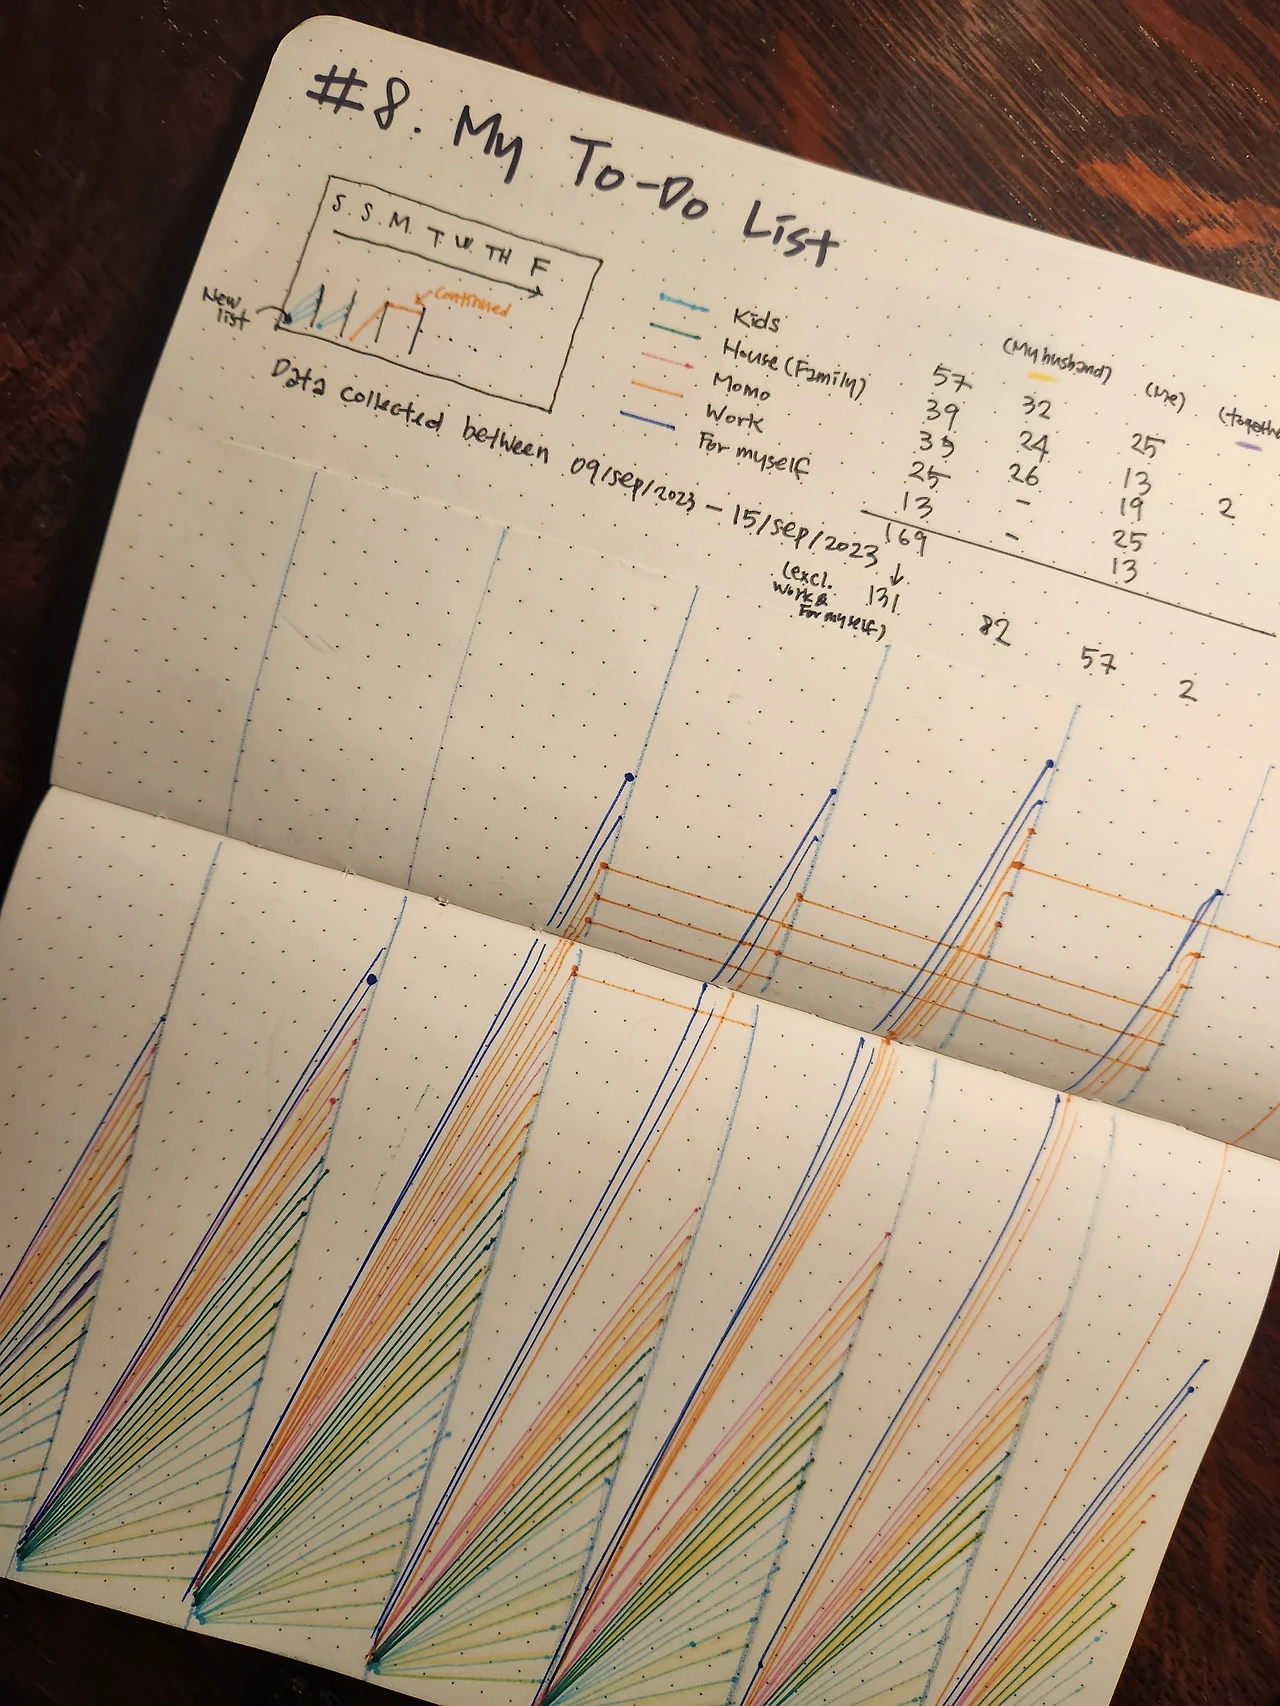 #8. My To-Do List
S. S. M. T. W. TH F
New list
Continued
Data collected between 09/sep/2023 – 15/sep/2023
(My husband) (Me) (together
Kids 57 32 25
House (Family) 39 24 13 2
Momo 35 26 19
Work 25 - 25
For myself 13 - 13
169
↓
(excl. Work & For myself) 131 82 57 2